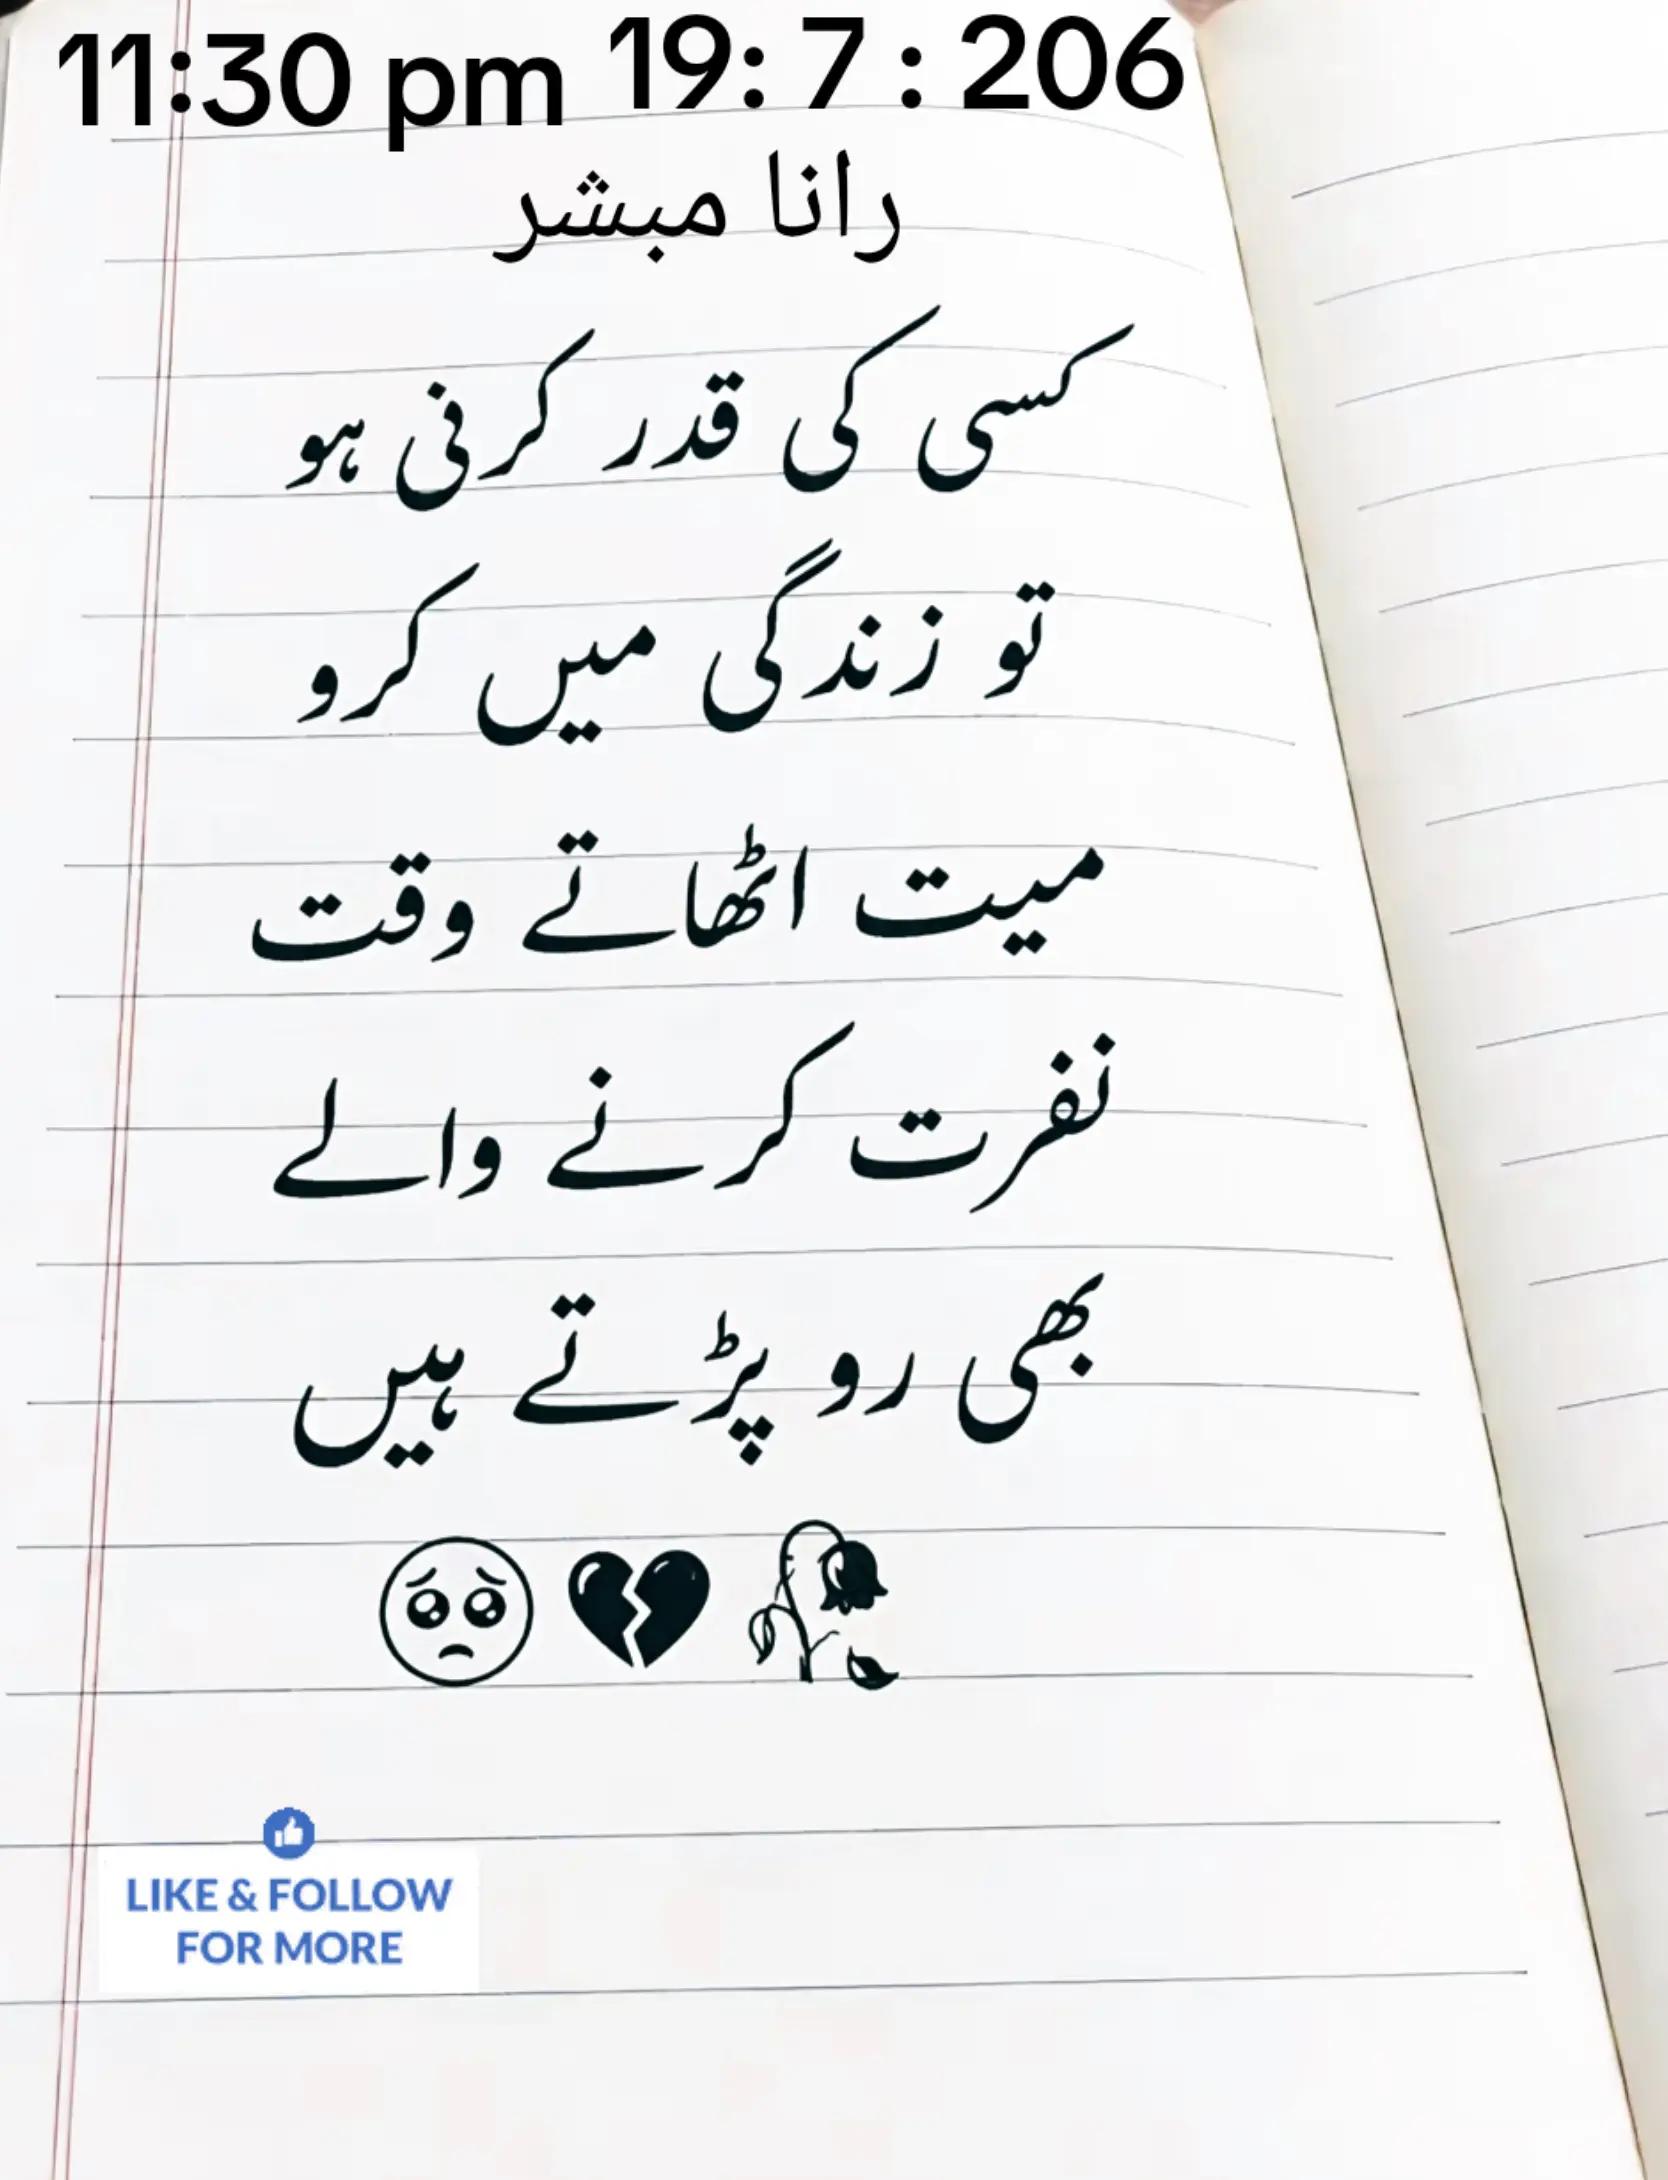 11:30 pm 19: 7 : 206
رانا مبشر
کسی کی قدر کرنی ہو
تو زندگی میں کرو
میت اٹھاتے وقت
نفرت کرنے والے
بھی رو پڑتے ہیں
🥺💔🥀
LIKE & FOLLOW
FOR MORE